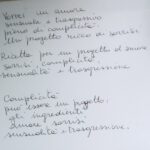 Vorrei un amore
sensuale e trasgressivo
pieno di complicità
un progetto ricco di sorrisi
Ricetta per un progetto d'amore
sorrisi, complicità,
sensualità e trasgressione
Complicità
può essere un progetto,
gli ingredienti
amore, sorrisi
sensualità e trasgressione.